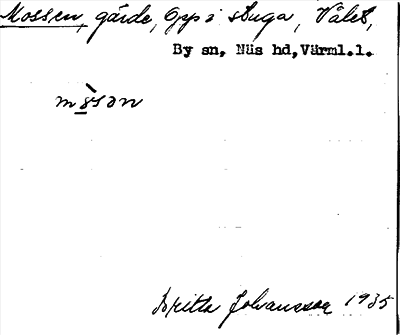 Mossen, gärde, Opp i stuga, Vålet,
By sn, Näs hd, Värml.l.
Britta Johansson 1935